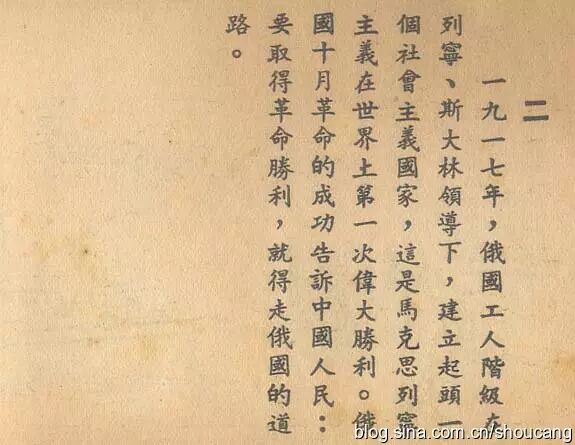 二
一九一七年，俄國工人階級在
列寧、斯大林領導下，建立起頭一
個社會主義國家，這是馬克思列寧
主義在世界土第一次偉大勝利。俄
國十月革命的成功告訴中國人民：
要取得革命勝利，就得走俄國的道
路。
blog.sina.com.cn/shoucang